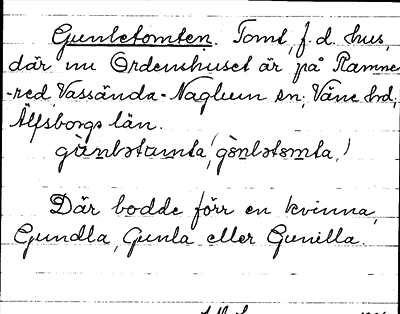 Gunletomten. Tomt, f.d. hus,
där nu Ordenshuset är på Ramne-
-red Vassända-Naglum sn; Väne hd,
Älfsborgs län.
gànlətamta (gònlətomta.)
Där bodde förr en kvinna,
Gundla, Gunla eller Gunilla.